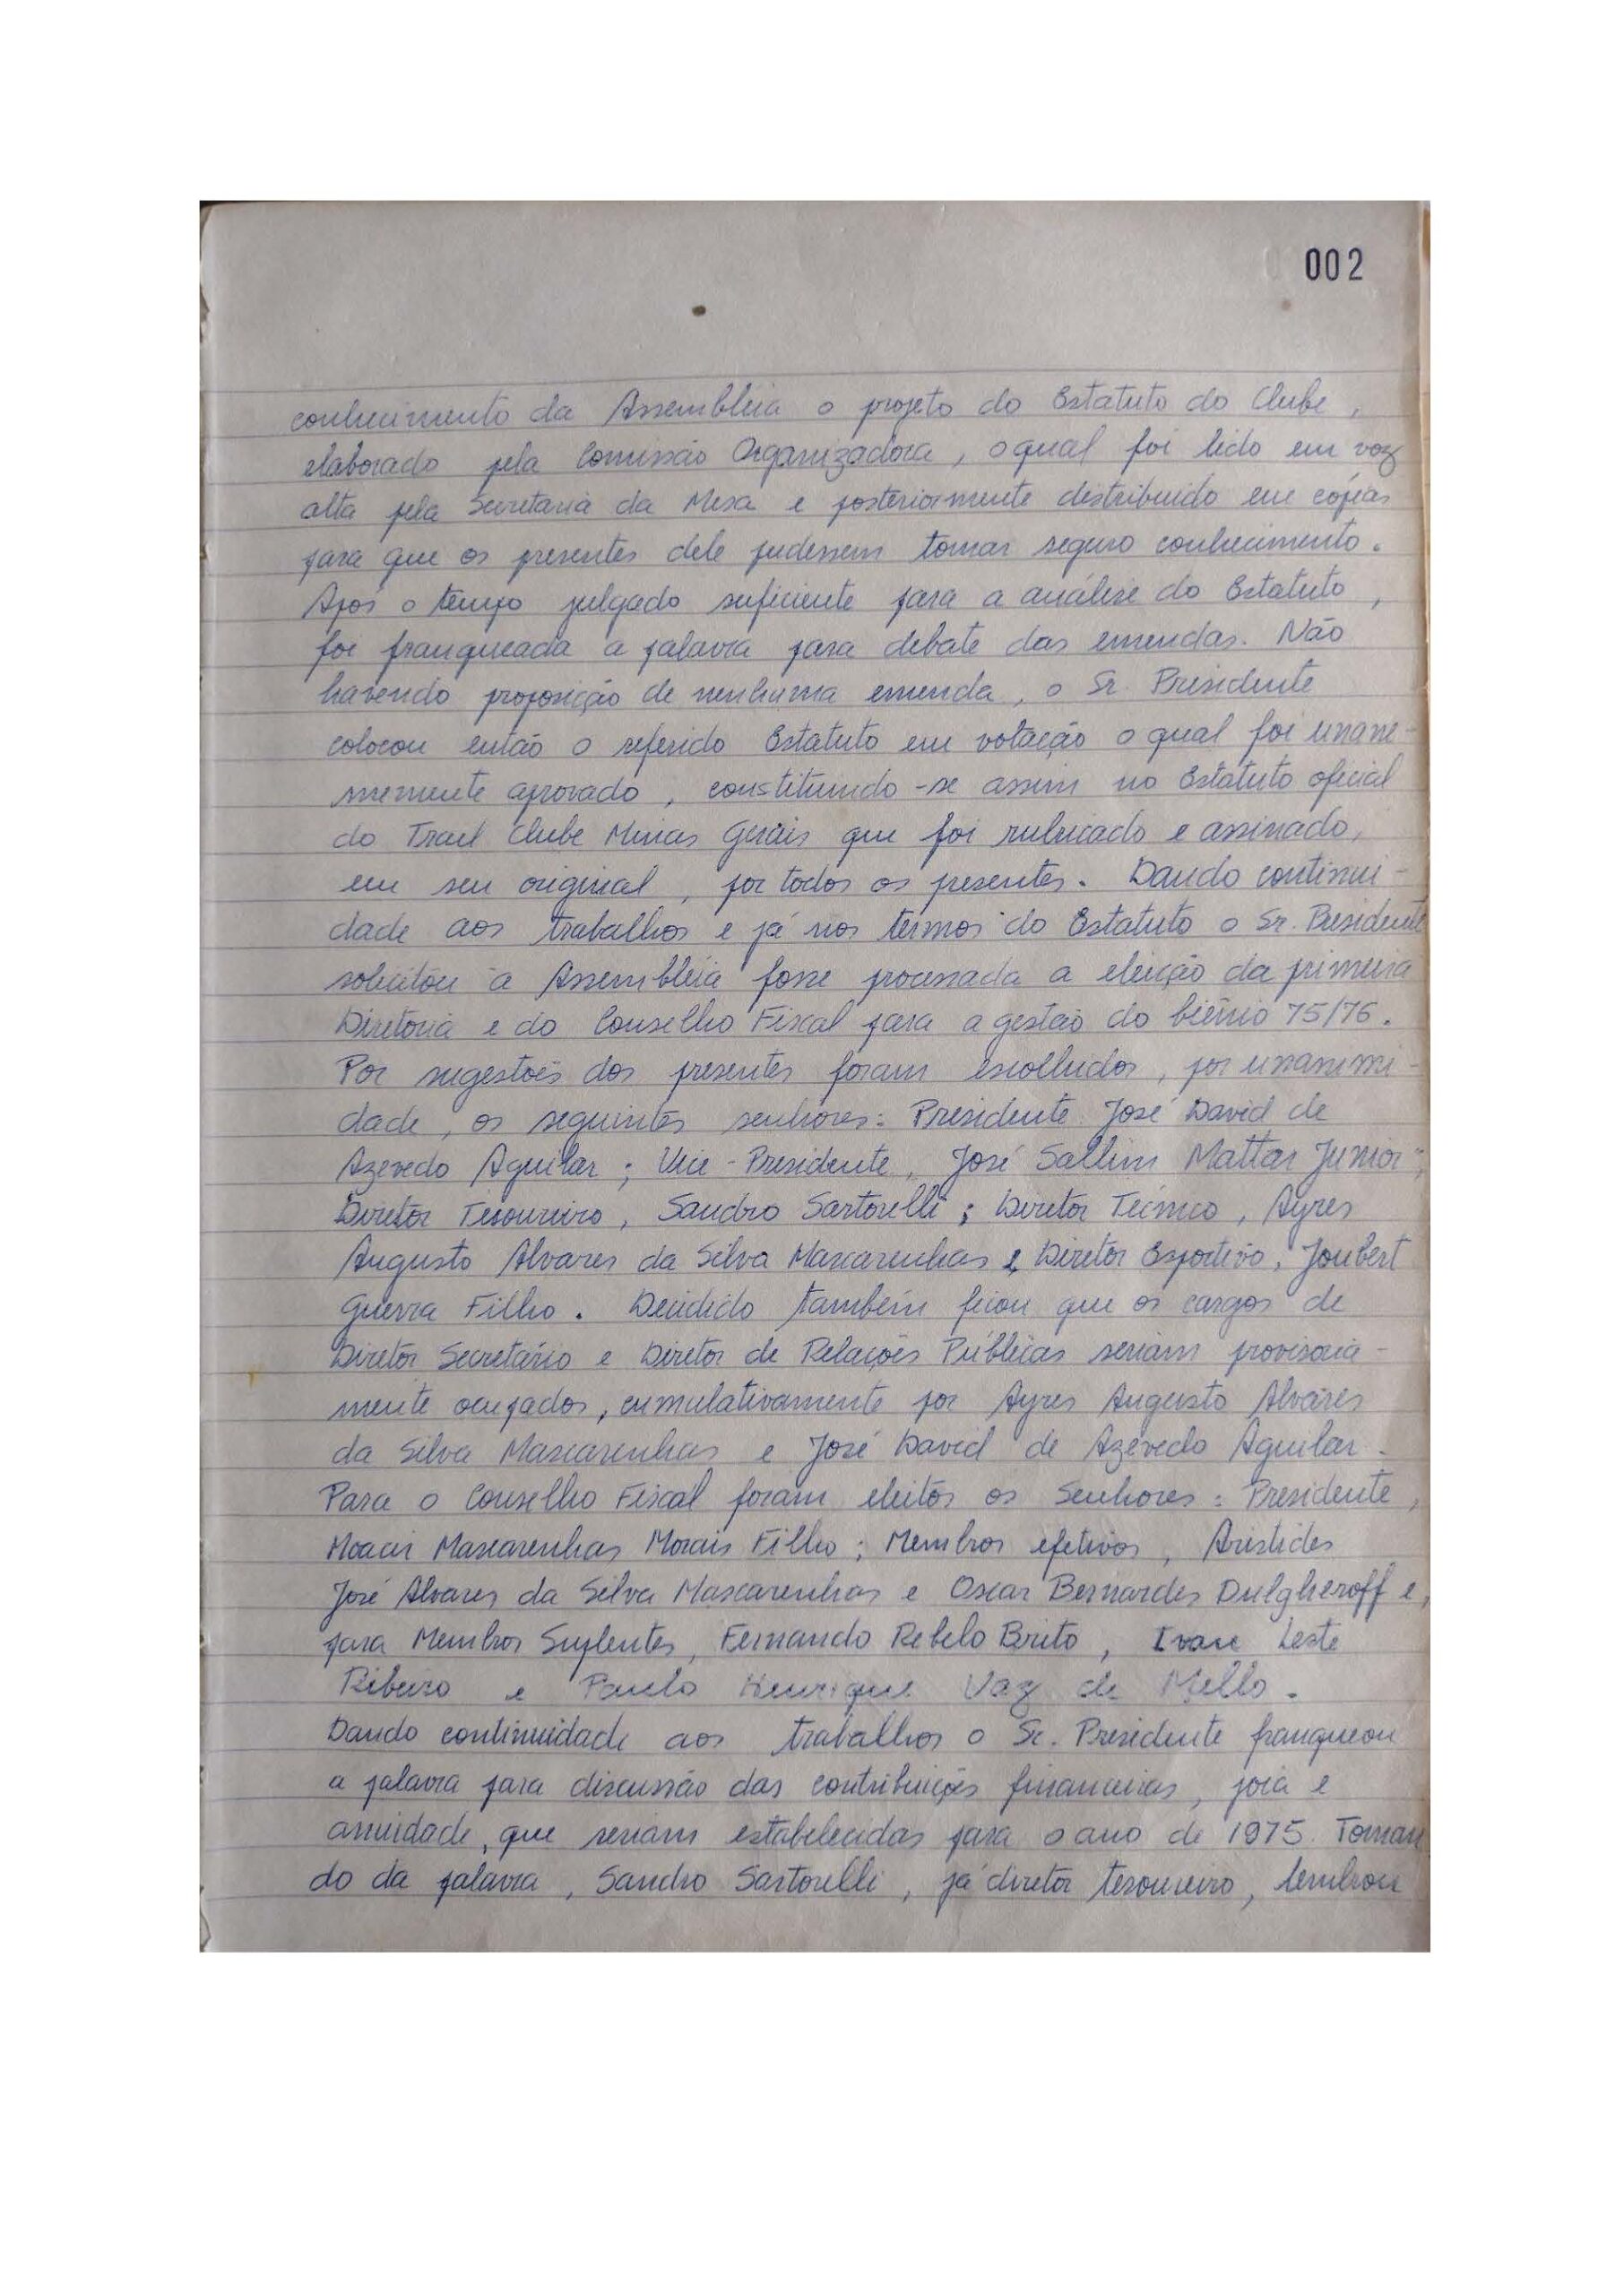 002
conhecimento da Assembléia o projeto do Estatuto do Clube,
elaborado pela Comissão Organizadora, o qual foi lido em voz
alta pela Secretaria da Mesa e posteriormente distribuido em cópias
para que os presentes dele pudessem tomar seguro conhecimento.
Após o tempo julgado suficiente para a análise do Estatuto,
foi franqueada a palavra para debate das emendas. Não
havendo proposição de nenhuma emenda, o Sr. Presidente
colocou então o referido Estatuto em votação o qual foi unane-
memente aprovado, constituindo-se assim no Estatuto oficial
do Trail Clube Minas Gerais que foi rubricado e assinado,
em seu original, por todos os presentes. Dando continui-
dade aos trabalhos e já nos termos do Estatuto o Sr. Presidente
solicitou à Assembléia fosse processada a eleição da primeira
Diretoria e do Conselho Fiscal para a gestão do biênio 75/76.
Por sugestões dos presentes foram escolhidos, por unanimi-
dade, os seguintes senhores: Presidente José David de
Azevedo Aguilar; Vice-Presidente, José Sallim Mattar Junior;
Diretor Tesoureiro, Sandro Sartorelli; Diretor Técnico, Ayres
Augusto Alvares da Silva Mascarenhas e, Diretor Esportivo, Joubert
Guerra Filho. Decidido também ficou que os cargos de
Diretor Secretário e Diretor de Relações Públicas seriam provisoria-
mente ocupados, cumulativamente por Ayres Augusto Alvares
da Silva Mascarenhas e José David de Azevedo Aguilar.
Para o Conselho Fiscal foram eleitos os Senhores: Presidente,
Moacir Mascarenhas Morais Filho; Membros efetivos, Aristides
José Alvares da Silva Mascarenhas e Oscar Bernardes Dulgheroff e,
para Membros Suplentes, Fernando Rebelo Brito, Ivan Leste
Ribeiro e Paulo Henrique Vaz de Mello.
Dando continuidade aos trabalhos o Sr. Presidente franqueou
a palavra para discussão das contribuições financeiras, joia e
anuidade, que seriam estabelecidas para o ano de 1975. Toman
do da palavra, Sandro Sartorelli, já diretor tesoureiro, lembrou